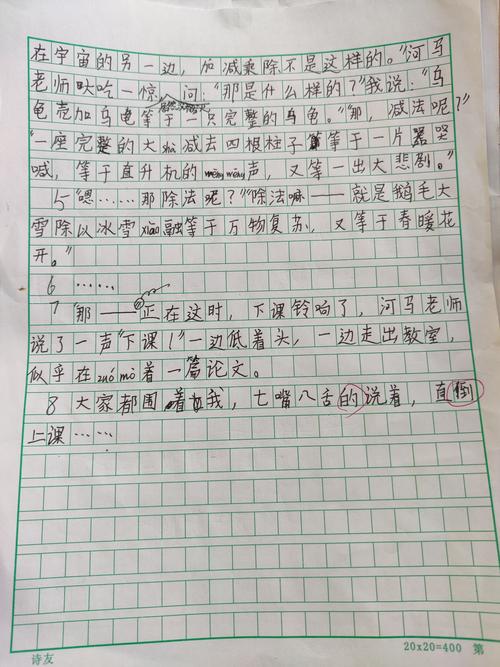 在宇宙的另一边，加减乘除不是这样的。”河马
老师大吃一惊，问：“那是什么样的？”我说：“乌
龟壳加乌龟等于一只完整的乌龟。”“那，减法呢？”
“一座完整的大shà减去四根柱子等于一片哭
喊，等于直升机的wēng wēng声，又等一出大悲剧。”
5 “嗯……那除法呢？”“除法嘛——就是鹅毛大
雪除以冰雪xiāo融等于万物复苏，又等于春暖花
开。”
6 ……
7 “那——”正在这时，下课铃响了，河马老师
说了一声“下课！”一边低着头，一边走出教室，
似乎在zuó mò着一篇论文。
8 大家都围着我，七嘴八舌的说着，直倒
上课……
诗友 20×20=400 第